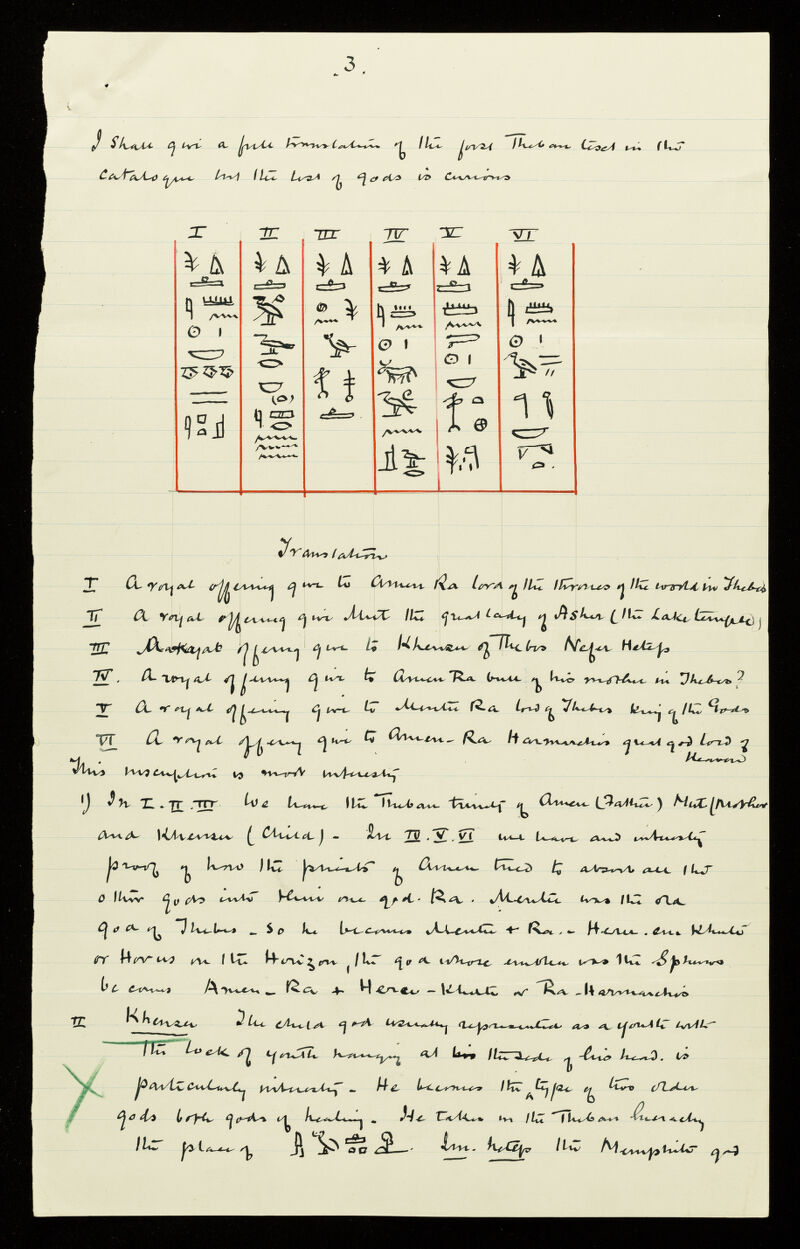 .3.
I shall give a full translation of the first Theban text in the
Catalogue but the list of gods is curious
I II III IV V VI
Translation
I A royal offering give to Amen Ra lord of the thrones of the world in Thebes
II A royal offering give Mut the great lady of Asher (the Lake temple)
III A royal offering give to Khensu of Thebes Nefer Hetep
IV. A royal offering give to Amen Ra bull of his mother in Thebes?
V A royal offering give to Mentu Ra lord of Thebes King of the Gods
VI A royal offering give to Amen-Ra Harmarchis great god lord of
Heaven
This inscription is most interesting
1) In I. II. III We have the Theban trinity of Amen (Father) Mut (Mother
and Khensu (Child) - In IV. V. VI we have and interestg
proof of how the priests of Amen tried to absorb all the
other gods into their one god. Ra. Mentu was the old
god of Thebes - So he becomes Mentu + Ra. - Heru. em Khuti
or Horus on the Horizon, the god whose emblem was the Sphinx
becomes Amen-Ra + Heru-Khuti or Ra-Harmarchis
II Khensu The child god usually represented as a youth with
the lock of youth hanging at the side of his head. is
particularly interestg - He becomes the type of two older
gods both gods of healing. He takes in the Theban hierarchy
the place of Im. hetep the Memphite god